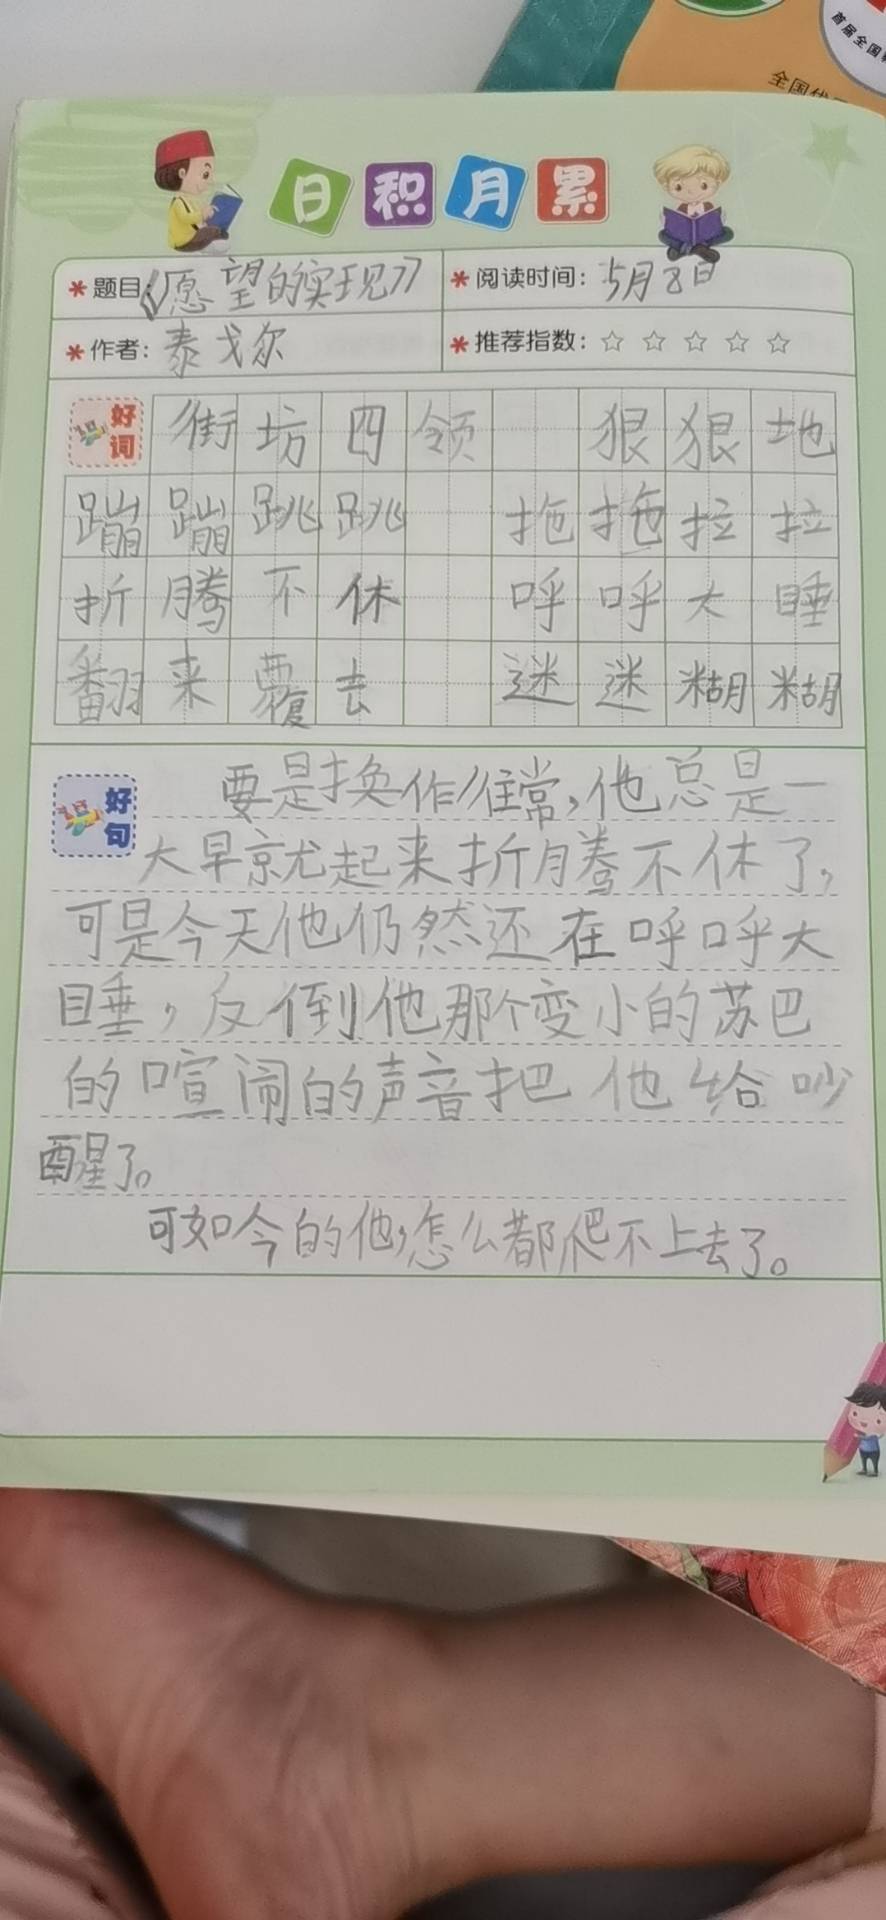 首届全国
全国优
日积月累
*题目:《愿望的实现》 *阅读时间:5月8日
*作者:泰戈尔 *推荐指数:☆☆☆☆☆
好词 街坊四领 狠狠地
蹦蹦跳跳 拖拖拉拉
折腾不休 呼呼大睡
翻来覆去 迷迷糊糊
好句 要是换作往常,他总是一
大早就起来折腾不休了,
可是今天他仍然还在呼呼大
睡,反倒他那个变小的苏巴
的喧闹的声音把他给吵
醒了。
可如今的他,怎么都爬不上去了。